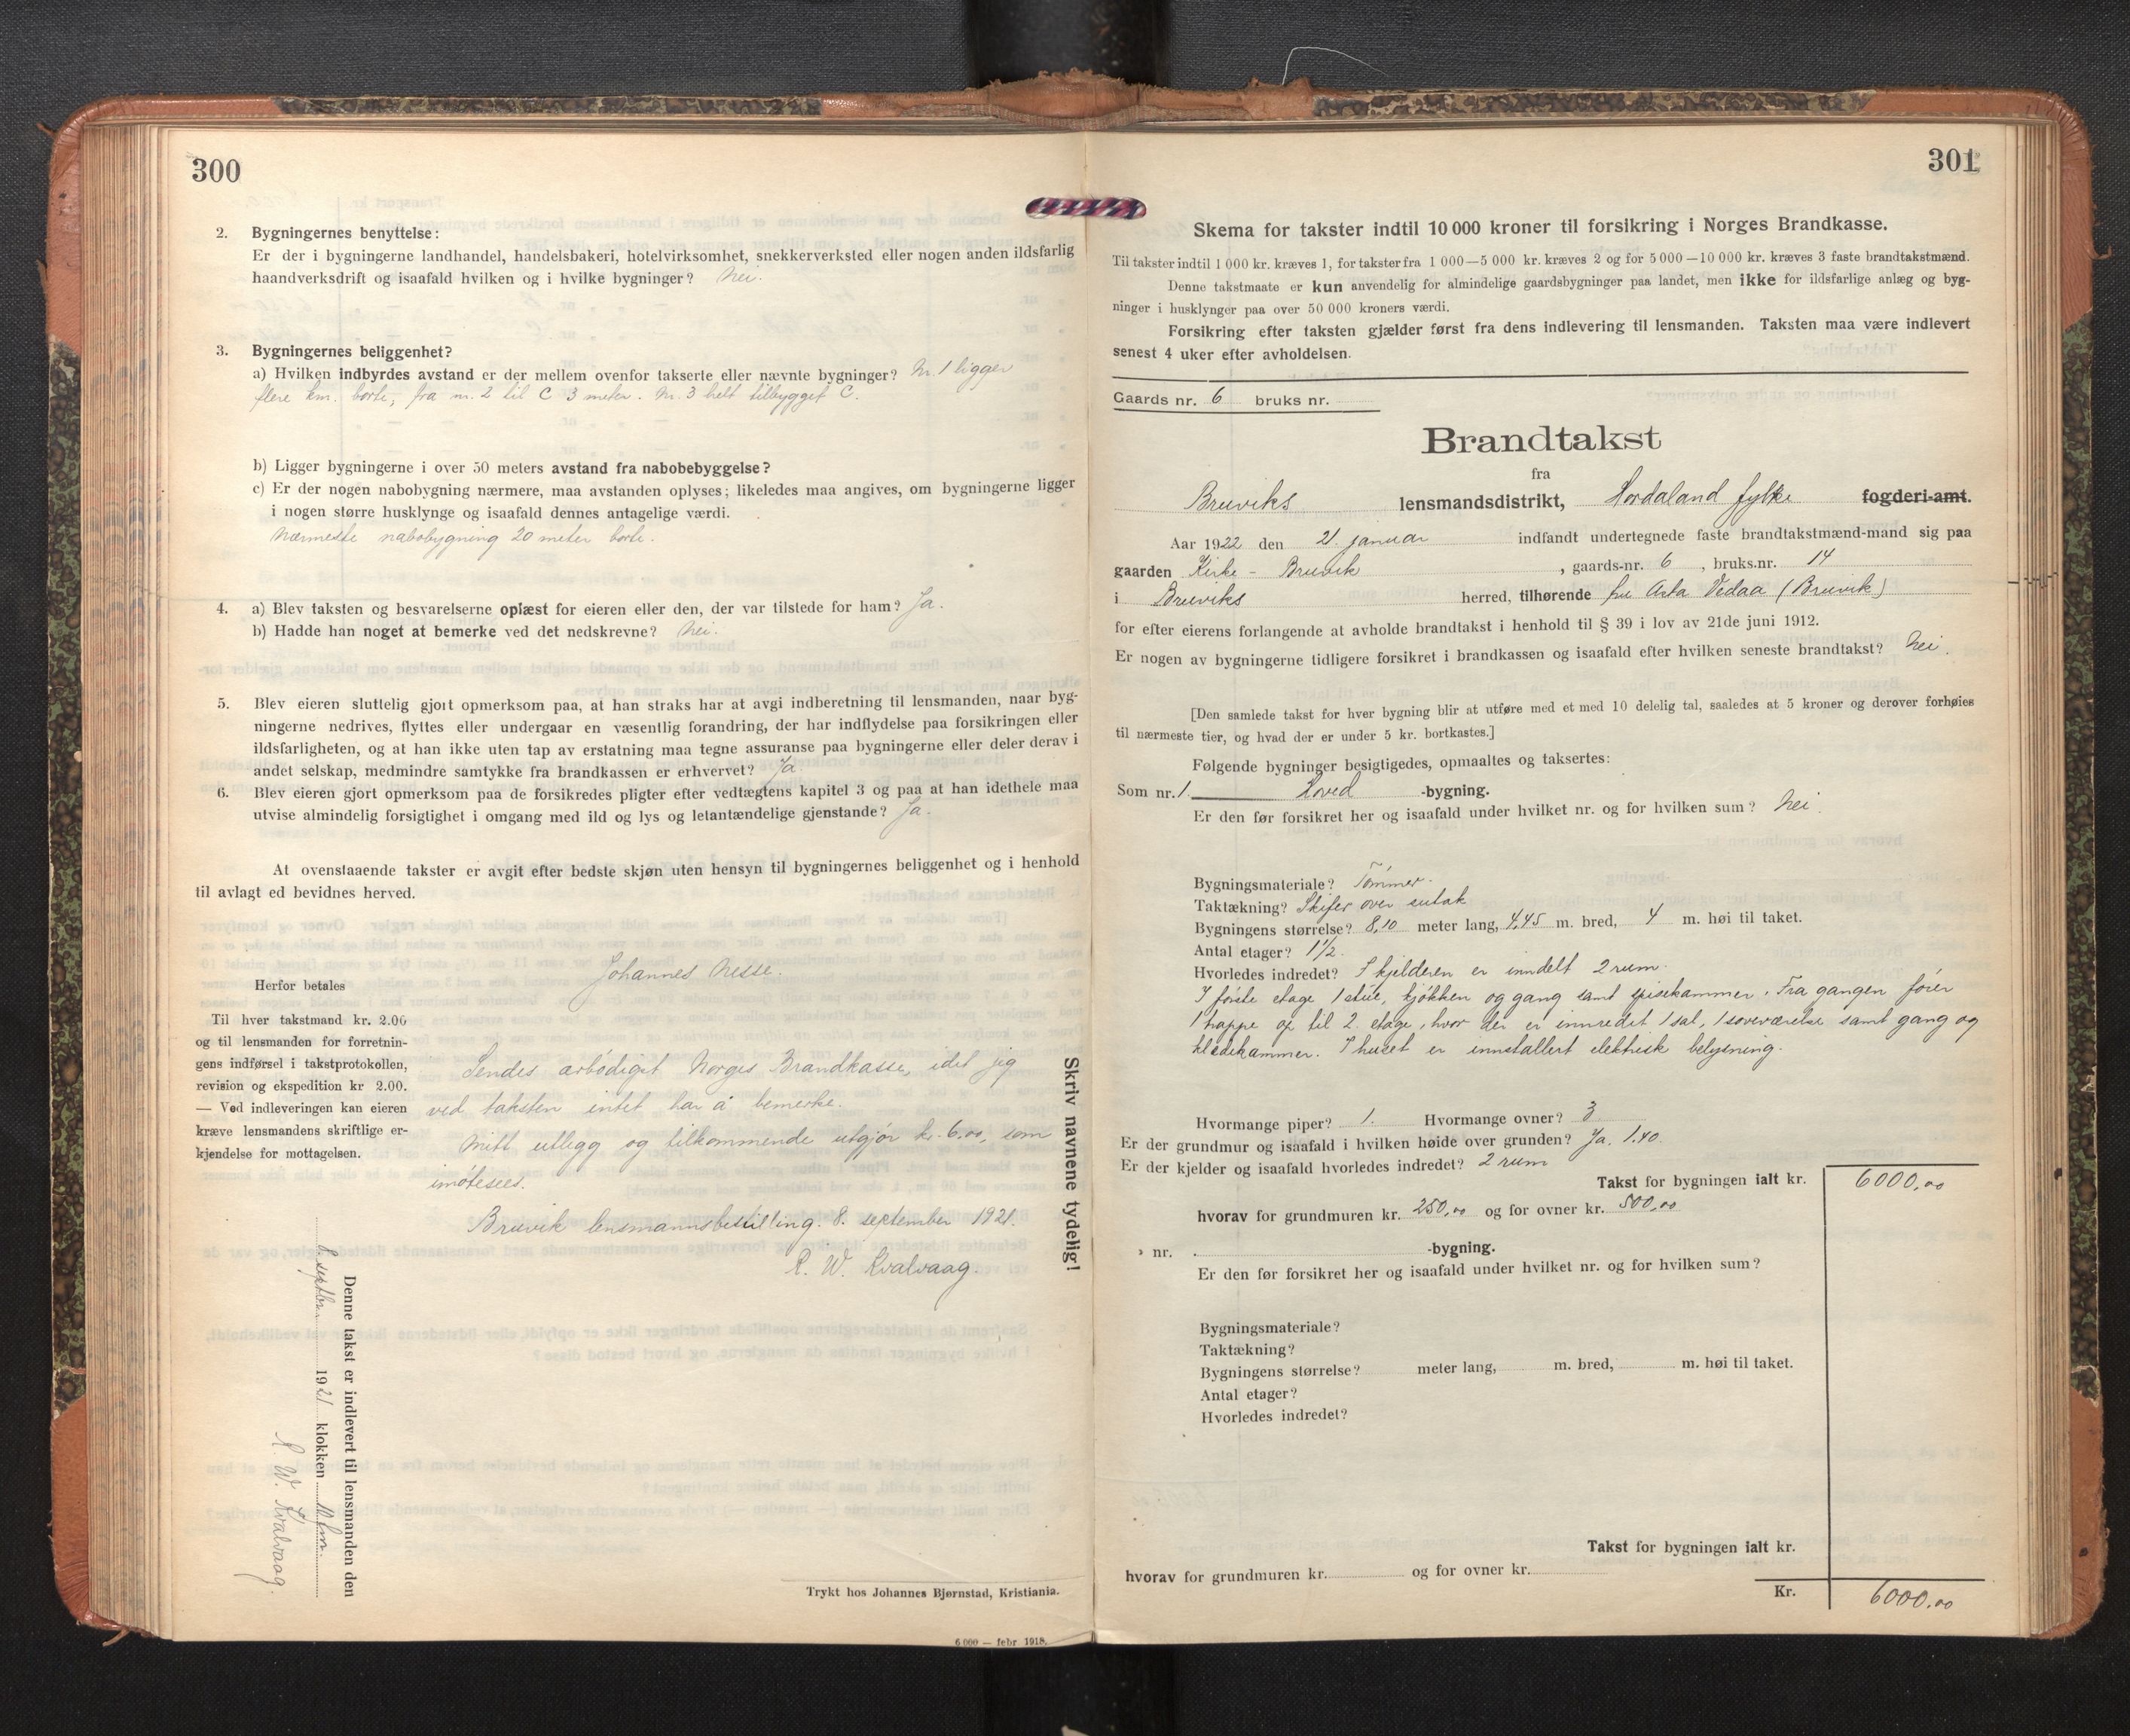 300
2. Bygningernes benyttelse:
Er der i bygningerne landhandel, handelsbakeri, hotelvirksomhet, snekkerverksted eller nogen anden ildsfarlig
haandverksdrift og isaafald hvilken og i hvilke bygninger? Nei.
3. Bygningernes beliggenhet?
a) Hvilken indbyrdes avstand er der mellem ovenfor takserte eller nævnte bygninger? Nr. 1 ligger
flere km. borte, fra nr. 2 til C 3 meter. Nr. 3 helt tilbygget C.
b) Ligger bygningerne i over 50 meters avstand fra nabobebyggelse?
c) Er der nogen nabobygning nærmere, maa avstanden oplyses; likeledes maa angives, om bygningerne ligger
i nogen større husklynge og isaafald dennes antagelige værdi.
Nærmeste nabobygning 20 meter borte.
4. a) Blev taksten og besvarelserne oplæst for eieren eller den, der var tilstede for ham? Ja.
b) Hadde han noget at bemerke ved det nedskrevne? Nei.
5. Blev eieren sluttelig gjort opmerksom paa, at han straks har at avgi indberetning til lensmanden, naar byg-
ningerne nedrives, flyttes eller undergaar en væsentlig forandring, der har indflydelse paa forsikringen eller
ildsfarligheten, og at han ikke uten tap av erstatning maa tegne assuranse paa bygningerne eller deler derav i
andet selskap, medmindre samtykke fra brandkassen er erhvervet? Ja.
6. Blev eieren gjort opmerksom paa de forsikredes pligter efter vedtægtens kapitel 3 og paa at han idethele maa
utvise almindelig forsigtighet i omgang med ild og lys og letantændelige gjenstande? Ja.
At ovenstaaende takster er avgit efter bedste skjøn uten hensyn til bygningernes beliggenhet og i henhold
til avlagt ed bevidnes herved.
Johannes Nesse.
Herfor betales
Til hver takstmand kr. 2.00
og til lensmanden for forretnin-
gens indførsel i takstprotokollen,
revision og ekspedition kr 2.00.
— Ved indleveringen kan eieren
kræve lensmandens skriftlige er-
kjendelse for mottagelsen.
Sendes ærbödigst Norges Brandkasse, idet jeg
ved taksten intet har å bemerke.
Mitt utlegg og tilkommende utgjör kr. 6,00, som
imötesees.
Bruvik lensmannsbestilling. 8. september 1921.
R. W. Kvalvaag.
Skriv navnene tydelig!
Denne takst er indlevert til lensmanden den
septbr. 1921 klokken
R. W. Kvalvaag.
Trykt hos Johannes Bjørnstad, Kristiania.
6 000 — febr 1918.
301
Skema for takster indtil 10 000 kroner til forsikring i Norges Brandkasse.
Til takster indtil 1 000 kr. kræves 1, for takster fra 1 000—5 000 kr. kræves 2 og for 5 000—10 000 kr. kræves 3 faste brandtakstmænd.
Denne takstmaate er kun anvendelig for almindelige gaardsbygninger paa landet, men ikke for ildsfarlige anlæg og byg-
ninger i husklynger paa over 50 000 kroners værdi.
Forsikring efter taksten gjælder først fra dens indlevering til lensmanden. Taksten maa være indlevert
senest 4 uker efter avholdelsen.
Gaards nr. 6 bruks nr.
Brandtakst
fra
Bruviks lensmandsdistrikt, Hordaland fylke fogderi-amt.
Aar 1922 den 21. januar indfandt undertegnede faste brandtakstmænd-mand sig paa
gaarden Kirke - Bruvik, gaards-nr. 6, bruks.nr. 14
i Bruviks herred, tilhørende fru Asta Vedaa (Bruvik)
for efter eierens forlangende at avholde brandtakst i henhold til § 39 i lov av 21de juni 1912.
Er nogen av bygningerne tidligere forsikret i brandkassen og isaafald efter hvilken seneste brandtakst? Nei.
[Den samlede takst for hver bygning blir at utføre med et med 10 delelig tal, saaledes at 5 kroner og derover forhøies
til nærmeste tier, og hvad der er under 5 kr. bortkastes.]
Følgende bygninger besigtigedes, opmaaltes og taksertes:
Som nr. 1. Hoved -bygning.
Er den før forsikret her og isaafald under hvilket nr. og for hvilken sum? Nei.
Bygningsmateriale? Tömmer.
Taktækning? Skifer over sutak
Bygningens størrelse? 8,10 meter lang, 4,45 m. bred, 4 m. høi til taket.
Antal etager? 1½.
Hvorledes indredet? I kjelderen er inndelt 2 rum.
I förste etage 1 stue, kjökken og gang samt spisekammer. Fra gangen förer
1 trappe op til 2. etage, hvor der er innredet 1 sal, 1 soveværelse samt gang og
klædekammer. I huset er innstallert elektrisk belysning.
Hvormange piper? 1. Hvormange ovner? 3
Er der grundmur og isaafald i hvilken høide over grunden? Ja, 1.40.
Er der kjelder og isaafald hvorledes indredet? 2 rum
Takst for bygningen ialt kr. 6000,00
hvorav for grundmuren kr. 250,00 og for ovner kr. 500,00
» nr. -bygning.
Er den før forsikret her og isaafald under hvilket nr. og for hvilken sum?
Bygningsmateriale?
Taktækning?
Bygningens størrelse? meter lang, m. bred, m. høi til taket.
Antal etager?
Hvorledes indredet?
Takst for bygningen ialt kr.
hvorav for grundmuren kr. og for ovner kr.
Kr. 6000,00